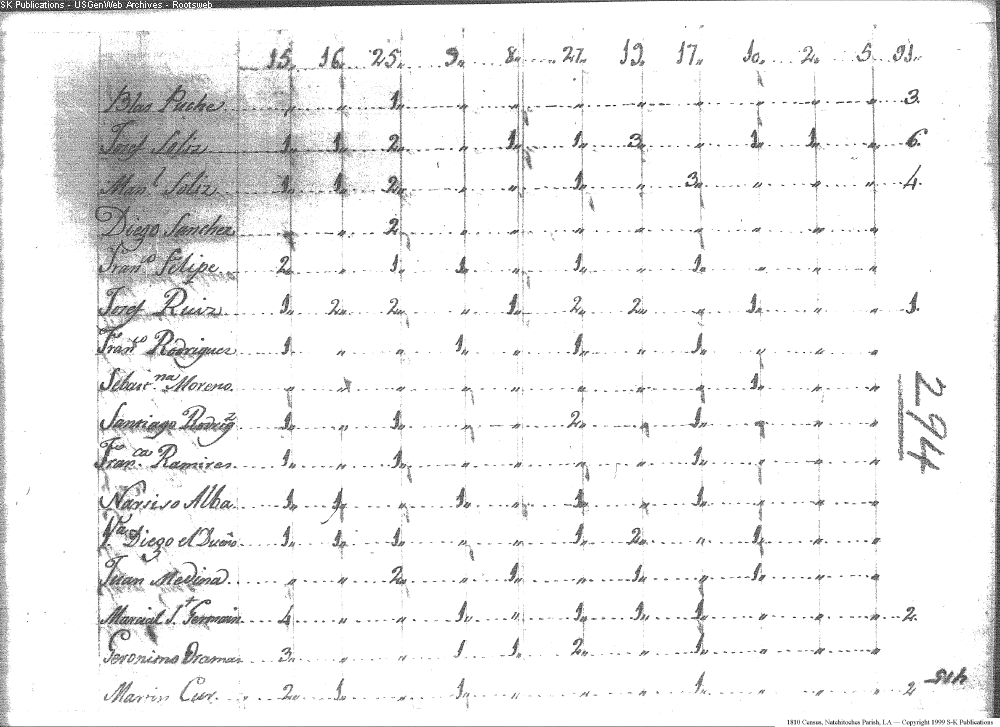 SK Publications - USGenWeb Archives - Rootsweb
15 16 25 9 8 27 19 17 10 2 5 31
Blas Puche " " 1 " " " " " " " " 3
Josef Soliz 1 1 2 " 1 1 3 " 1 1 " 6
Man.l Soliz 1 1 2 " " 1 " 3 " " " 4
Diego Sanchez " " 2 " " " " " " " "
Fran.co Felipe 2 " 1 1 " 1 " 1 " " "
Josef Ruiz 1 2 2 " 1 2 2 " 1 " " 1
Fran.co Rodriguez 1 " " 1 " 1 " 1 " " "
Sebast.na Moreno " " " " " " " " 1 " "
Santiago Rodrig.z 1 " 1 " " 2 " 1 " " "
Fran.ca Ramires 1 " 1 " " " " 1 " " "
Narsiso Alba 1 1 " 1 " 1 " 1 " " "
Diego el Dueño 1 1 1 " " 1 2 " 1 " "
Juan Medina " " 2 " 1 " 1 " 1 " "
Marcial S.t Germain 4 " " 1 " 1 1 1 " " " 2
Geronimo 3 " " 1 1 2 " 1 " " "
2 1 " 1 " " " 1 " " " 2
294
1810 Census, Natchitoches Parish, LA — Copyright 1999 S-K Publications